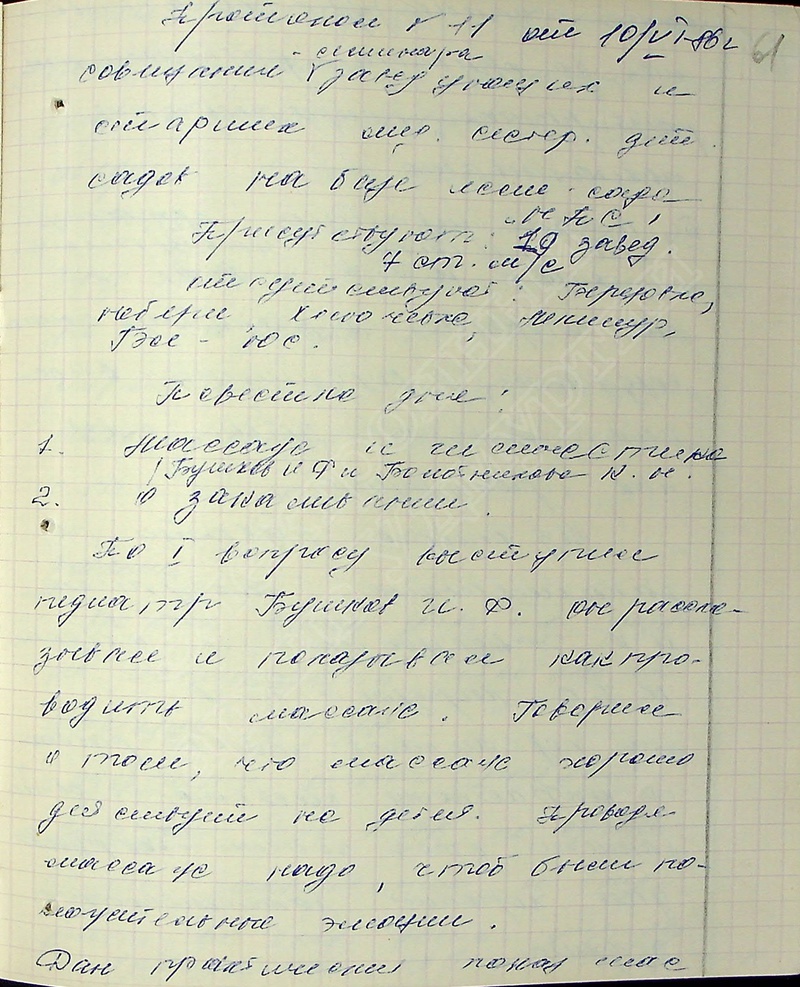 Протокол № 11 от 10/VI-86г
61
- семинара
совещания заведующих и
старших мед. сестер. дет.
садов на базе ясли-сада
Присутствуют: 19 завед.
7 ст. м/с
отсутствуют:
Повестка дня:
1. Массаж и гимнастика
/ Бушков И Ф и Болотникова К. Н.
2. О закаливании.
По I вопросу выступил
педиатр Бушков И. Ф. он расска-
зывал и показывал как про-
водить массаж. Говорил
о том, что массаж хорошо
действует на детей. Проводя
массаж надо, чтоб были по-
ложительные эмоции.
Дан практический показ